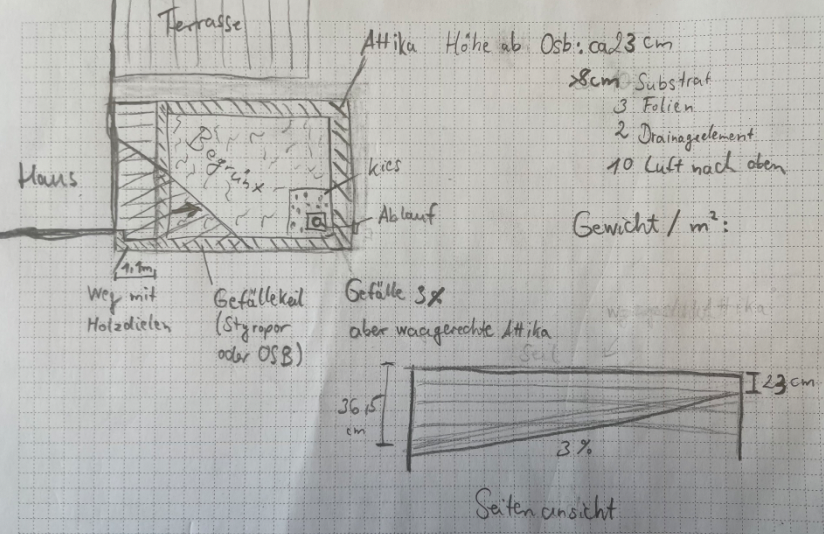 Terrasse
Attika Höhe ab Osb: ca 23 cm
>8cm Substrat
3 Folien
2 Drainageelement
10 Luft nach oben
Haus
Kies
Ablauf
Gewicht / m²:
1,1m
Weg mit
Holzdielen
Gefällekeil
(Styropor
oder OSB)
Gefälle 3%
aber waagerechte Attika
36,5
cm
23 cm
3%
Seitenansicht